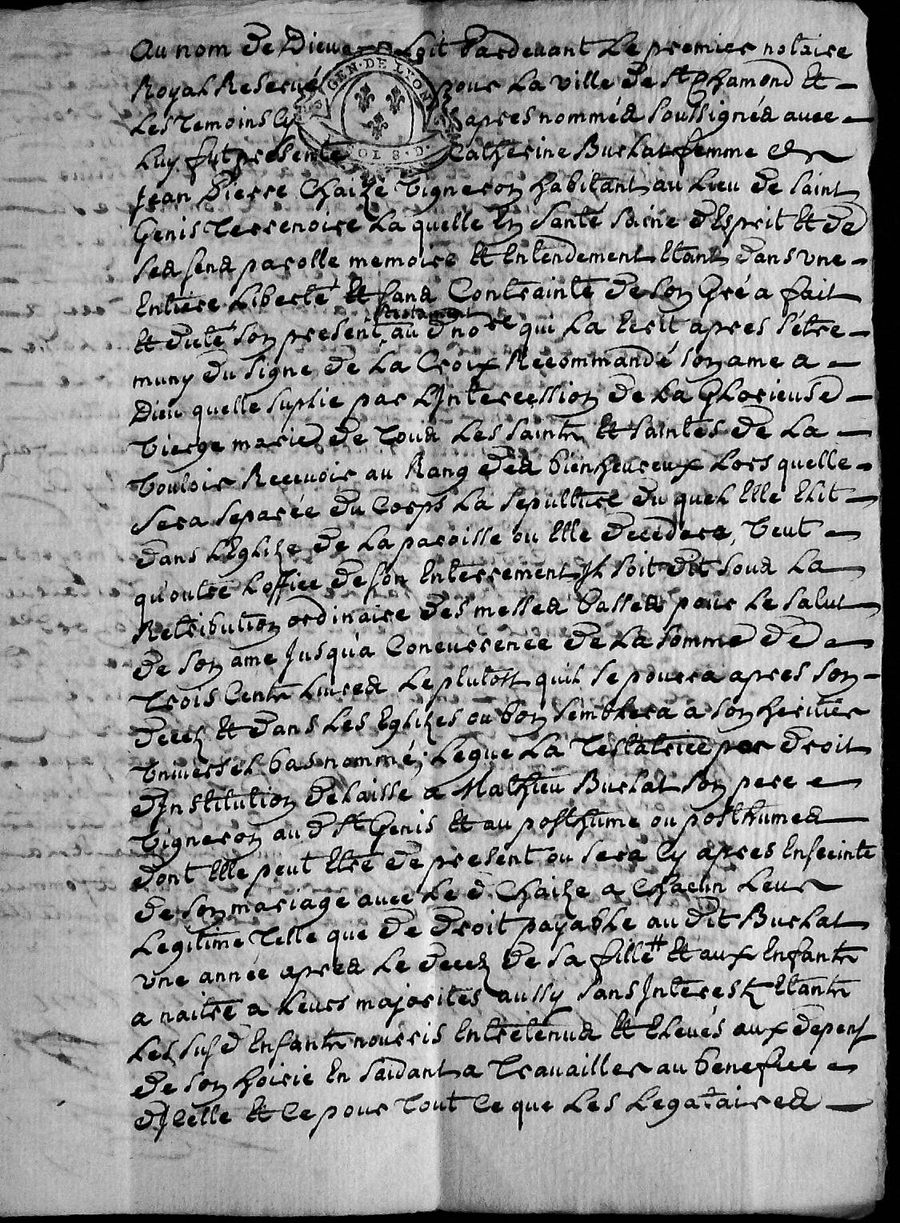 Au nom de Dieu soit Pardevant Le premier notaire
Royal Reservé pour La ville de St Chamond Et
Les Temoins cy apres nommés soussignés avec
GEN. DE LYON
SOLS. D.
Luy fut presente Catherine Burlat femme de
Jean Pierre Chaize Vigneron habitant au Lieu de saint
Genis Terrenoire La quelle En santé saine d'Esprit Et de
ses sens parolle memoire Et Entendement Etant dans une
Entiere Liberté Et sans Contrainte de son Gré a fait
testament
Et dicté son present au d no.re qui La Ecrit apres s'etre
muny du signe de La Croix Recommandé son ame a
Dieu quelle suplie par L'Intercession de La Glorieuse
Vierge marie de Tous Les saints Et saintes de La
Vouloir Recevoir au Rang des bienheureux Lors quelle
sera separée du Corps La sepulture du quel Elle Elit
dans L'Eglize de La paroisse ou Elle decedera, Veut
qu'outre L'office de son Enterrement Il soit dit sous La
Retribution ordinaire des messes basses pour Le salut
de son ame Jusqu'a Concurrence de La somme de
Trois Cents Livres Le plutost qu'il se pourra apres son
decez Et dans Les Eglizes ou bon semblera a son heritier
Universel bas nommé, Legue La Testatrice par droit
d'Institution delaisse a Mathieu Burlat son pere
Vigneron au d St Genis Et au posthume ou posthumes
dont Elle peut Etre de present ou sera cy apres Enceinte
de son mariage avec Le d Chaize a Chacun Leur
Legitime Telle que de droit payable au dit Burlat
une année apres Le decez de sa fille Et aux Enfants
a naitre a Leurs majorites aussy sans Interest Etants
Les sus d Enfants nourris Entretenus Et Elevés aux depens
de son hoirie En s'aidant a Travailler au benefice
d'Icelle Et ce pour Tout ce que Les Legataires